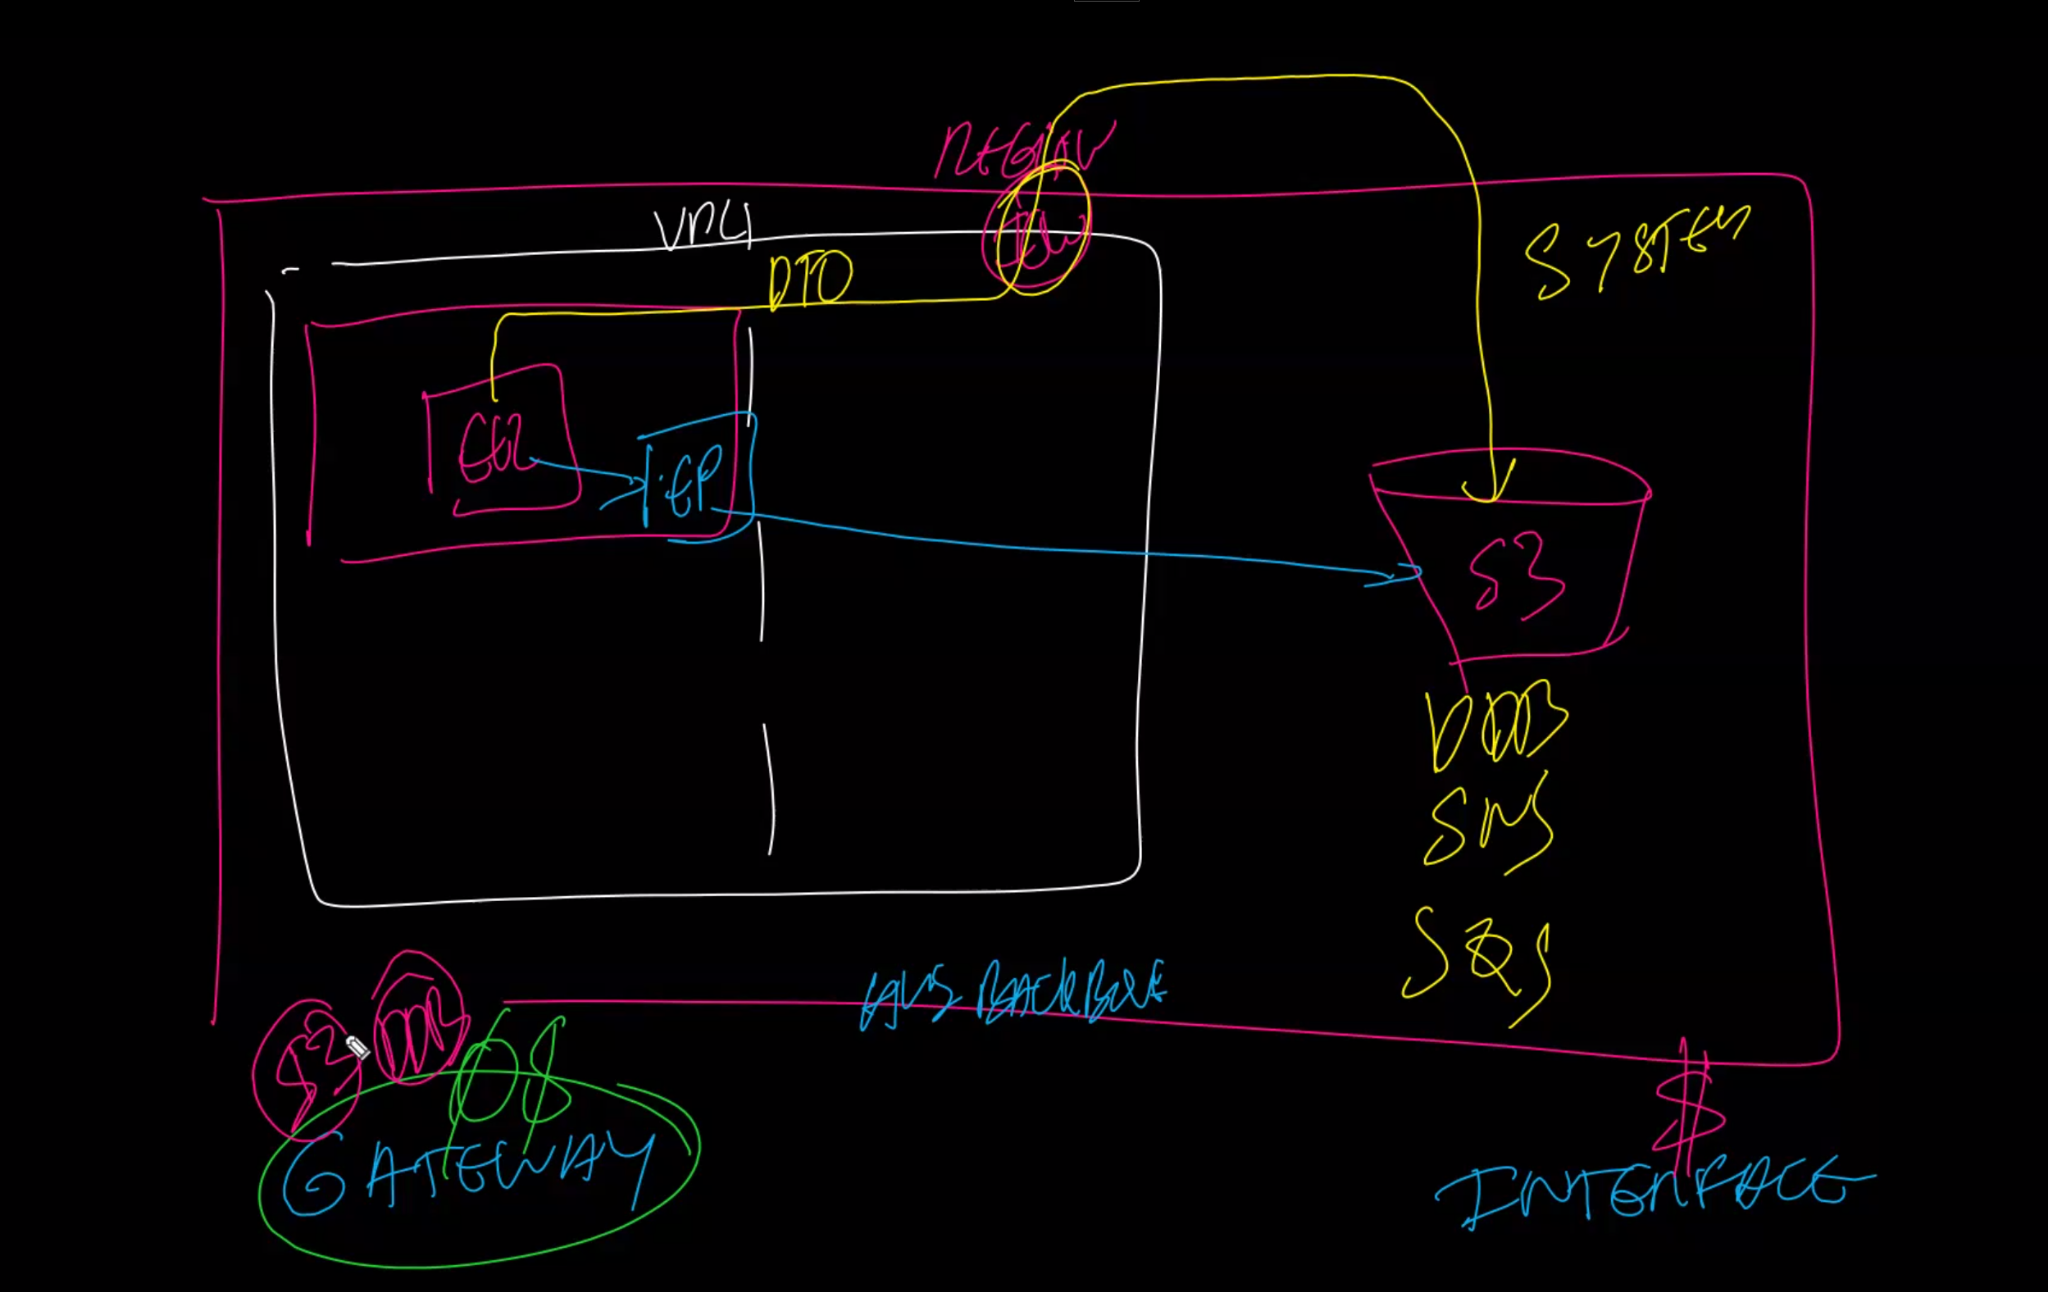 REGION
VPC1
IGW
SYSTEM
DTO
EC2
EP
S3
DDB
SNS
SQS
AWS BACKBONE
S3 DDB 0$
$
GATEWAY
INTERFACE